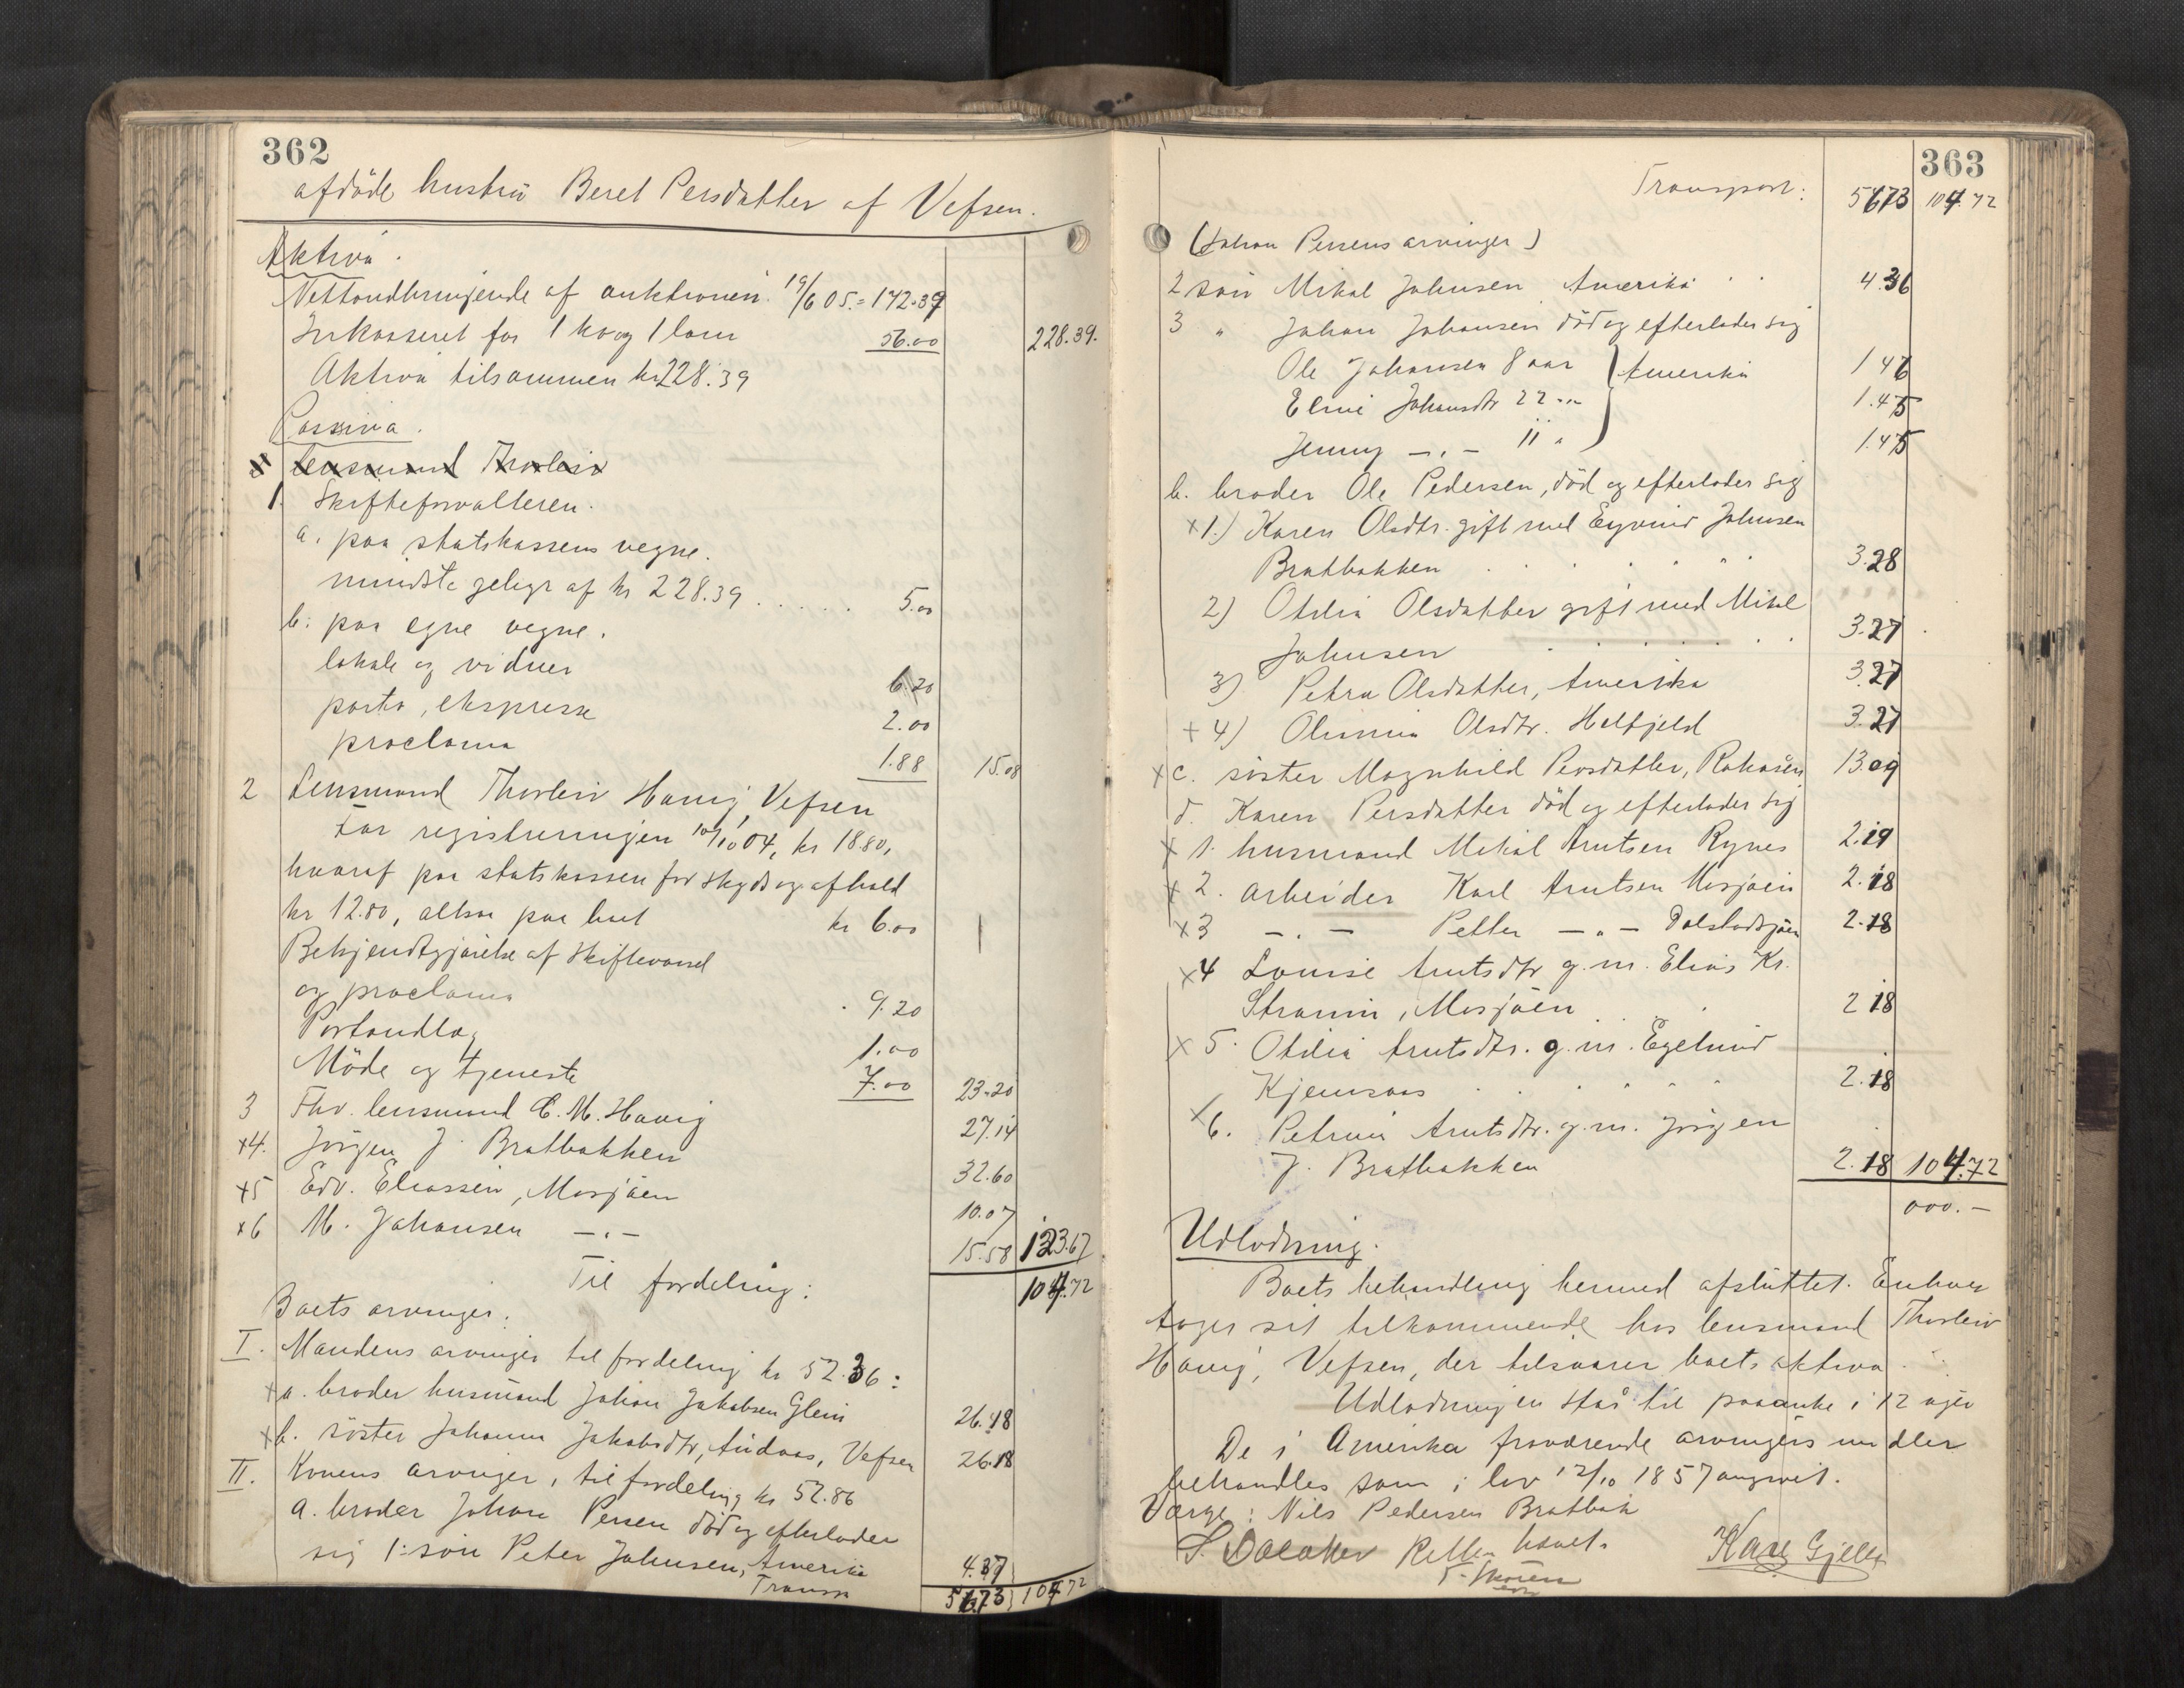 362
afdöde hustru Beret Persdatter af Vefsen.
Aktiva.
Nettoudbringende af auktionen 19/6 05 = 172.39
Inkasseret for 1 ko og 1 lam 56.00 228.39.
Aktiva tilsammen kr 228.39
Passiva.
Lensmand Thorleiv
1. Skifteforvalteren.
a. paa statskassens vegne.
mindste gebyr af kr 228.39 . . . . . 5.00
b: paa egne vegne.
lokale og vidner 6.20
porto, ekspresse 2.00
proclama 1.88 15.08
2 Lensmand Thorleiv Havig, Vefsen
For registreringen 10/10 04, kr 18.80,
hvoraf paa statskassen for skyds og ophold
kr 12.80, altsaa paa boet kr 6.00
Bekjendtgjörelse af skiftevarsel
og proclama . 9.20
Portoudlæg 1.00
Möde og tjeneste 7.00 23.20
3 Fhv. lensmand C. M. Havig 27.14
x4. Jörgen J. Bratbakken 32.60
x5 Edv. Eliassen, Mosjöen 10.07
x6 M. Johansen — " — 15.58 123.67
Til fordeling: 104.72
Boets arvinger.
I. Mandens arvinger til fordeling kr 52.36:
x a. broder husmand Johan Jakobsen Glein 26.18
x b. söster Johanna Jakobsdtr, Andaas, Vefsen 26.18
II. Konens arvinger, til fordeling kr 52.36
a. broder Johan Persen död og efterlader
sig 1: sön Peter Johnsen, Amerika 4.37
Transp 56.73 104.72
363
Transport: 56.73 104.72
(Johan Persens arvinger)
2 sön Mikal Johnsen Amerika . . 4.36
3 " Johan Johansen död og efterlader sig
Ole Johansen 8 aar } Amerika 1 46
Eline Johansdtr 22 " 1.45
Jenny — " — 11 " 1.45
b. broder Ole Pedersen, död og efterlader sig
x 1.) Karen Olsdtr. gift med Eyvind Johnsen
Bratbakken . . . . . 3.28
2) Otelia Olsdatter gift med Mikal
Johnsen . . . . . 3.27
3) Petra Olsdatter, Amerika 3.27
+ 4) Olumia Olsdtr. Helfjeld 3.27
x c. söster Magnhild Persdatter, Rakaasen 13.09
d. Karen Persdatter död og efterlader sig
x 1. husmand Mikal Arntsen Rynes 2.19
x 2. arbeider Karl Arntsen Mosjöen 2.18
x 3 — " — Petter — " — Dolstadsjöen 2.18
x 4 Louise Arntsdtr g. m. Elias Kr.
Stranin, Mosjöen . . . 2 18
x 5. Otelia Arntsdtr. g. m. Egelund
Kjemsaas . . . . . 2.18
x 6. Petrina Arntsdtr. g. m. Jörgen
J. Bratbakken 2.18 104.72
000. —
Udlodning.
Boets behandling hermed afsluttet. Enhver
tager sit tilkommende hos lensmand Thorleiv
Havig, Vefsen, der tilsvarer boets aktiva.
Udlodningen staar til paaanke i 12 uger
De i Amerika fraværende arvingers midler
behandles som i lov 12/10 1857 angivet.
Værge: Nils Pedersen Bratbak
Petter
Karl Gjelle